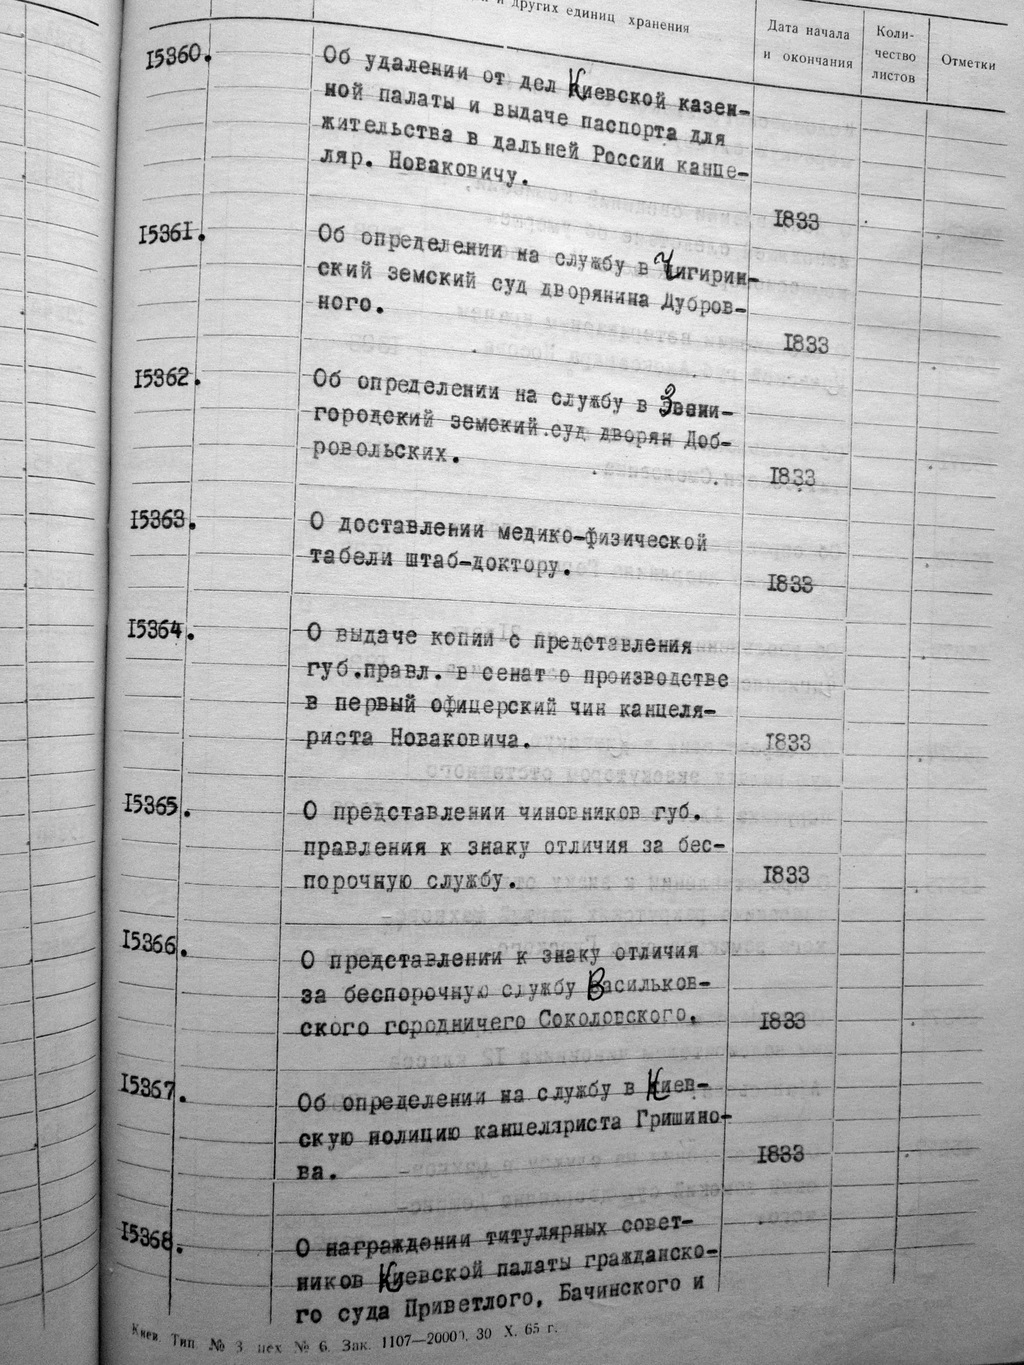 и других единиц хранения
Дата начала
и окончания
Коли-
чество
листов
Отметки
15360.
Об удалении от дел Киевской казен-
ной палаты и выдаче паспорта для
жительства в дальней России канце-
ляр. Новаковичу.
1833
15361.
Об определении на службу в Чигирин-
ский земский суд дворянина Дубров-
ного.
1833
15362.
Об определении на службу в Звени-
городский земский суд дворян Доб-
ровольских.
1833
15363.
О доставлении медико-физической
табели штаб-доктору.
1833
15364.
О выдаче копии с представления
губ.правл. в сенат о производстве
в первый офицерский чин канцеля-
риста Новаковича.
1833
15365.
О представлении чиновников губ.
правления к знаку отличия за бес-
порочную службу.
1833
15366.
О представлении к знаку отличия
за беспорочную службу Васильков-
ского городничего Соколовского.
1833
15367.
Об определении на службу в Киев-
скую полицию канцеляриста Гришино-
ва.
1833
15368.
О награждении титулярных совет-
ников Киевской палаты гражданско-
го суда Приветлого, Бачинского и
Киев. Тип. № 3 цех № 6. Зак. 1107—20000. 30 X. 65 г.